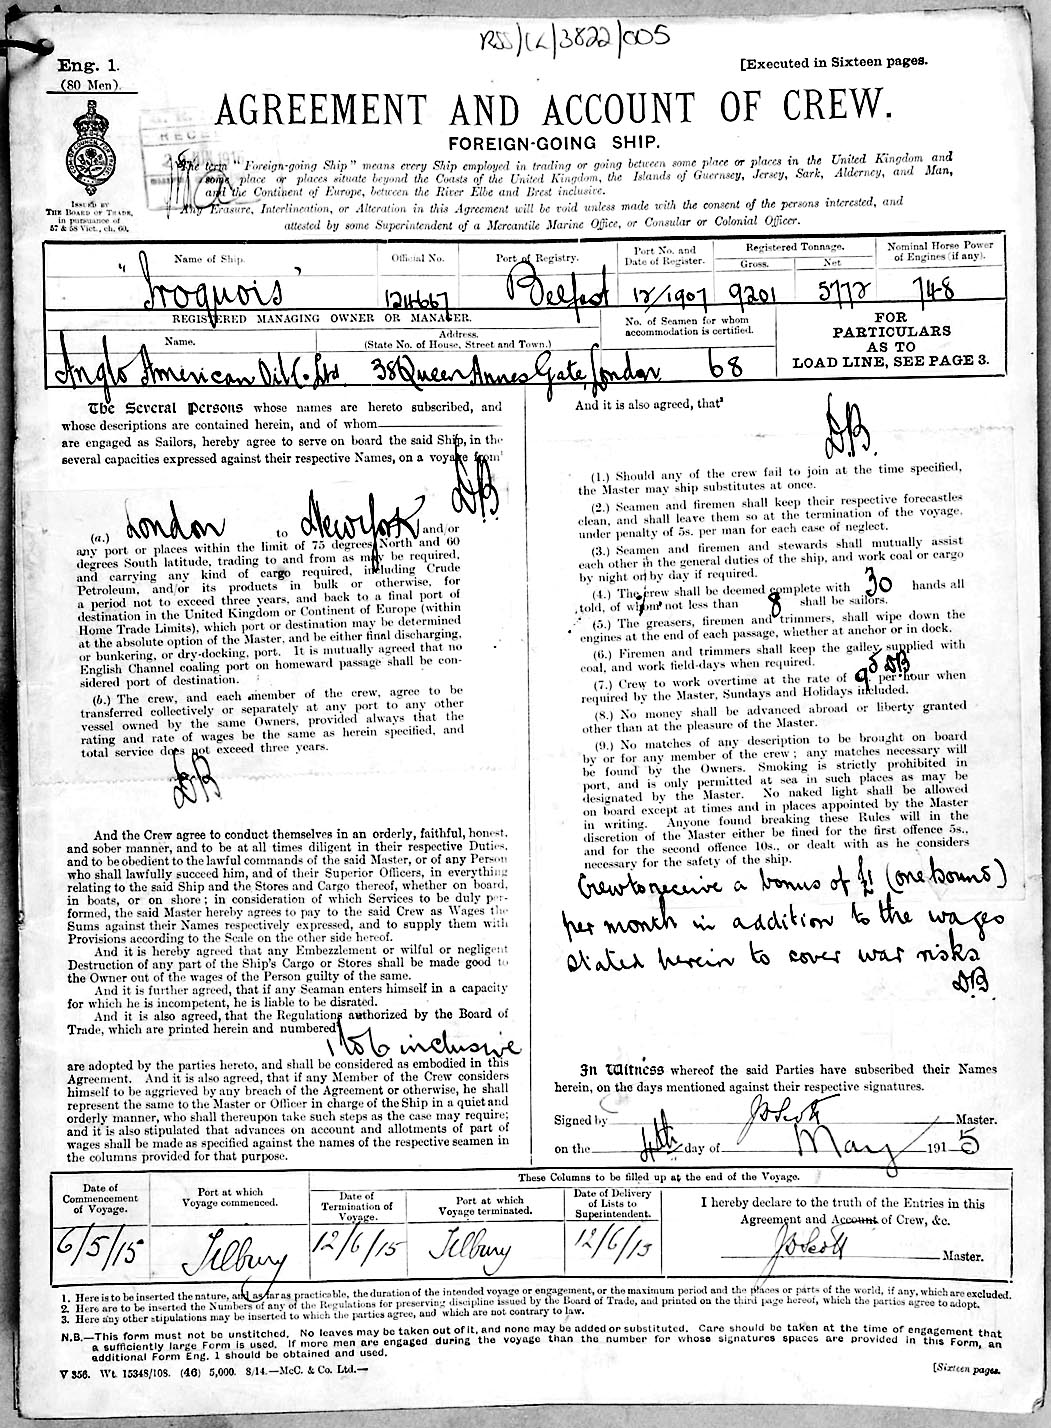 RSS/CL/3822/005
Eng. 1.
(80 Men).
[Executed in Sixteen pages.
AGREEMENT AND ACCOUNT OF CREW.
FOREIGN-GOING SHIP.
ISSUED BY
THE BOARD OF TRADE,
in pursuance of
57 & 58 Vict., ch. 60.
The term "Foreign-going Ship" means every Ship employed in trading or going between some place or places in the United Kingdom and
some place or places situate beyond the Coasts of the United Kingdom, the Islands of Guernsey, Jersey, Sark, Alderney, and Man,
and the Continent of Europe, between the River Elbe and Brest inclusive.
Any Erasure, Interlineation, or Alteration in this Agreement will be void unless made with the consent of the persons interested, and
attested by some Superintendent of a Mercantile Marine Office, or Consular or Colonial Officer.
Name of Ship.
Official No.
Port of Registry.
Port No. and
Date of Register.
Registered Tonnage.
Gross.
Net.
Nominal Horse Power
of Engines (if any).
"Iroquois"
124667
Belfast
12/1907
9201
5772
748
REGISTERED MANAGING OWNER OR MANAGER.
Name.
Address.
(State No. of House, Street and Town.)
No. of Seamen for whom
accommodation is certified.
FOR
PARTICULARS
AS TO
LOAD LINE, SEE PAGE 3.
Anglo American Oil Co. Ltd
38 Queen Annes Gate, London
68
The Several Persons whose names are hereto subscribed, and
whose descriptions are contained herein, and of whom
are engaged as Sailors, hereby agree to serve on board the said Ship, in the
several capacities expressed against their respective Names, on a voyage from¹
DB
(a.) London to New York and/or
any port or places within the limit of 75 degrees North and 60
degrees South latitude, trading to and from as may be required,
and carrying any kind of cargo required, including Crude
Petroleum, and/or its products in bulk or otherwise, for
a period not to exceed three years, and back to a final port of
destination in the United Kingdom or Continent of Europe (within
Home Trade Limits), which port or destination may be determined
at the absolute option of the Master, and be either final discharging,
or bunkering, or dry-docking, port. It is mutually agreed that no
English Channel coaling port on homeward passage shall be con-
sidered port of destination.
(b.) The crew, and each member of the crew, agree to be
transferred collectively or separately at any port to any other
vessel owned by the same Owners, provided always that the
rating and rate of wages be the same as herein specified, and
total service does not exceed three years.
DB
And the Crew agree to conduct themselves in an orderly, faithful, honest,
and sober manner, and to be at all times diligent in their respective Duties,
and to be obedient to the lawful commands of the said Master, or of any Person
who shall lawfully succeed him, and of their Superior Officers, in everything
relating to the said Ship and the Stores and Cargo thereof, whether on board,
in boats, or on shore; in consideration of which Services to be duly per-
formed, the said Master hereby agrees to pay to the said Crew as Wages the
Sums against their Names respectively expressed, and to supply them with
Provisions according to the Scale on the other side hereof.
And it is hereby agreed that any Embezzlement or wilful or negligent
Destruction of any part of the Ship's Cargo or Stores shall be made good to
the Owner out of the wages of the Person guilty of the same.
And it is further agreed, that if any Seaman enters himself in a capacity
for which he is incompetent, he is liable to be disrated.
And it is also agreed, that the Regulations authorized by the Board of
Trade, which are printed herein and numbered²
1 to 6 inclusive
are adopted by the parties hereto, and shall be considered as embodied in this
Agreement. And it is also agreed, that if any Member of the Crew considers
himself to be aggrieved by any breach of the Agreement or otherwise, he shall
represent the same to the Master or Officer in charge of the Ship in a quiet and
orderly manner, who shall thereupon take such steps as the case may require;
and it is also stipulated that advances on account and allotments of part of
wages shall be made as specified against the names of the respective seamen in
the columns provided for that purpose.
And it is also agreed, that³
DB.
(1.) Should any of the crew fail to join at the time specified,
the Master may ship substitutes at once.
(2.) Seamen and firemen shall keep their respective forecastles
clean, and shall leave them so at the termination of the voyage,
under penalty of 5s. per man for each case of neglect.
(3.) Seamen and firemen and stewards shall mutually assist
each other in the general duties of the ship, and work coal or cargo
by night or by day if required.
(4.) The crew shall be deemed complete with 30 hands all
told, of whom not less than 8 shall be sailors.
(5.) The greasers, firemen and trimmers, shall wipe down the
engines at the end of each passage, whether at anchor or in dock.
(6.) Firemen and trimmers shall keep the galley supplied with
coal, and work field-days when required.
(7.) Crew to work overtime at the rate of 9d DB per hour when
required by the Master, Sundays and Holidays included.
(8.) No money shall be advanced abroad or liberty granted
other than at the pleasure of the Master.
(9.) No matches of any description to be brought on board
by or for any member of the crew; any matches necessary will
be found by the Owners. Smoking is strictly prohibited in
port, and is only permitted at sea in such places as may be
designated by the Master. No naked light shall be allowed
on board except at times and in places appointed by the Master
in writing. Anyone found breaking these Rules will in the
discretion of the Master either be fined for the first offence 5s.,
and for the second offence 10s., or dealt with as he considers
necessary for the safety of the ship.
Crew to receive a bonus of £1 (one Pound)
per month in addition to the wages
stated herein to cover war risks
DB.
In Witness whereof the said Parties have subscribed their Names
herein, on the days mentioned against their respective signatures.
Signed by J D Scott Master.
on the 4th day of May 1915
These Columns to be filled up at the end of the Voyage.
Date of
Commencement
of Voyage.
Port at which
Voyage commenced.
Date of
Termination of
Voyage.
Port at which
Voyage terminated.
Date of Delivery
of Lists to
Superintendent.
I hereby declare to the truth of the Entries in this
Agreement and Account of Crew, &c.
6/5/15
Tilbury
12/6/15
Tilbury
12/6/15
J D Scott Master.
1. Here is to be inserted the nature, and as far as practicable, the duration of the intended voyage or engagement, or the maximum period and the places or parts of the world, if any, which are excluded.
2. Here are to be inserted the Numbers of any of the Regulations for preserving discipline issued by the Board of Trade, and printed on the third page hereof, which the parties agree to adopt.
3. Here any other stipulations may be inserted to which the parties agree, and which are not contrary to law.
N.B.—This form must not be unstitched. No leaves may be taken out of it, and none may be added or substituted. Care should be taken at the time of engagement that
a sufficiently large Form is used. If more men are engaged during the voyage than the number for whose signatures spaces are provided in this Form, an
additional Form Eng. 1 should be obtained and used.
V 356. Wt. 15348/108. (46) 5,000. 8/14.—McC. & Co. Ltd.—
[Sixteen pages.